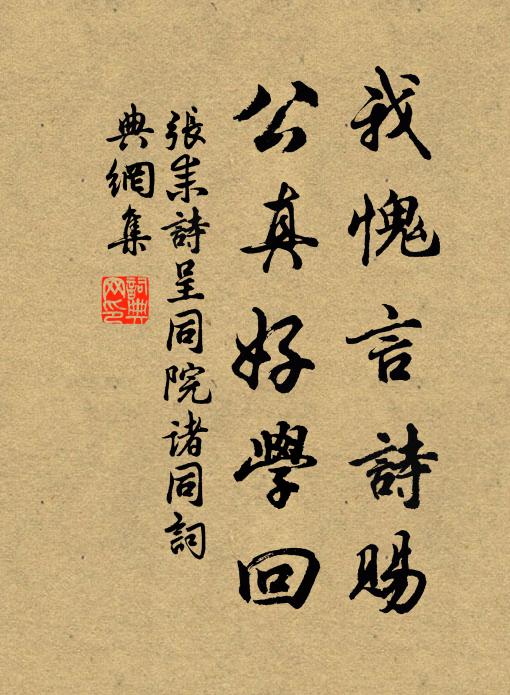 我愧言詩賜
公真好學回
張耒詩呈同院諸同詞
典網集
詞典網印